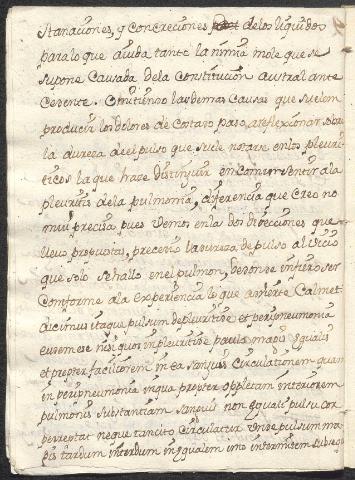 stanaciones, y concreciones de los liquidos
para lo que aiuba tanto la nimia mole que se
supone causaba de la constitucion austral ante
cedente. Omitiendo las demas causas que suelen
producir los dolores de costado paso a reflexionar sobre
la dureza de el pulso que suele notarse en los pleuri
ticos la que haze distinguir en comun sentir a la
pleuritis de la pulmonia, diferencia que creo no
mui precisa pues vemos en las dos direcciones que
llevo propuestas, precedio la dureza de pulso al vicio
que solo se hallo en el pulmon, de donde infiero ser
conforme a la experiencia lo que advierte Calmet
dicimus itaque pulsum de pleuritide et peripneumonia
eundem esse nisi quod in pleuritide paulo magis equalis
et propter faciliorem in ea sanguis circulationem quam
in peripneumonia in qua propter oppletam interiorem
pulmonis substantiam sanguis non equali pulsu cor
perreptat neque tam cito circulatur unde pulsum ma
gis tardum interdum inequalem imo intermitem